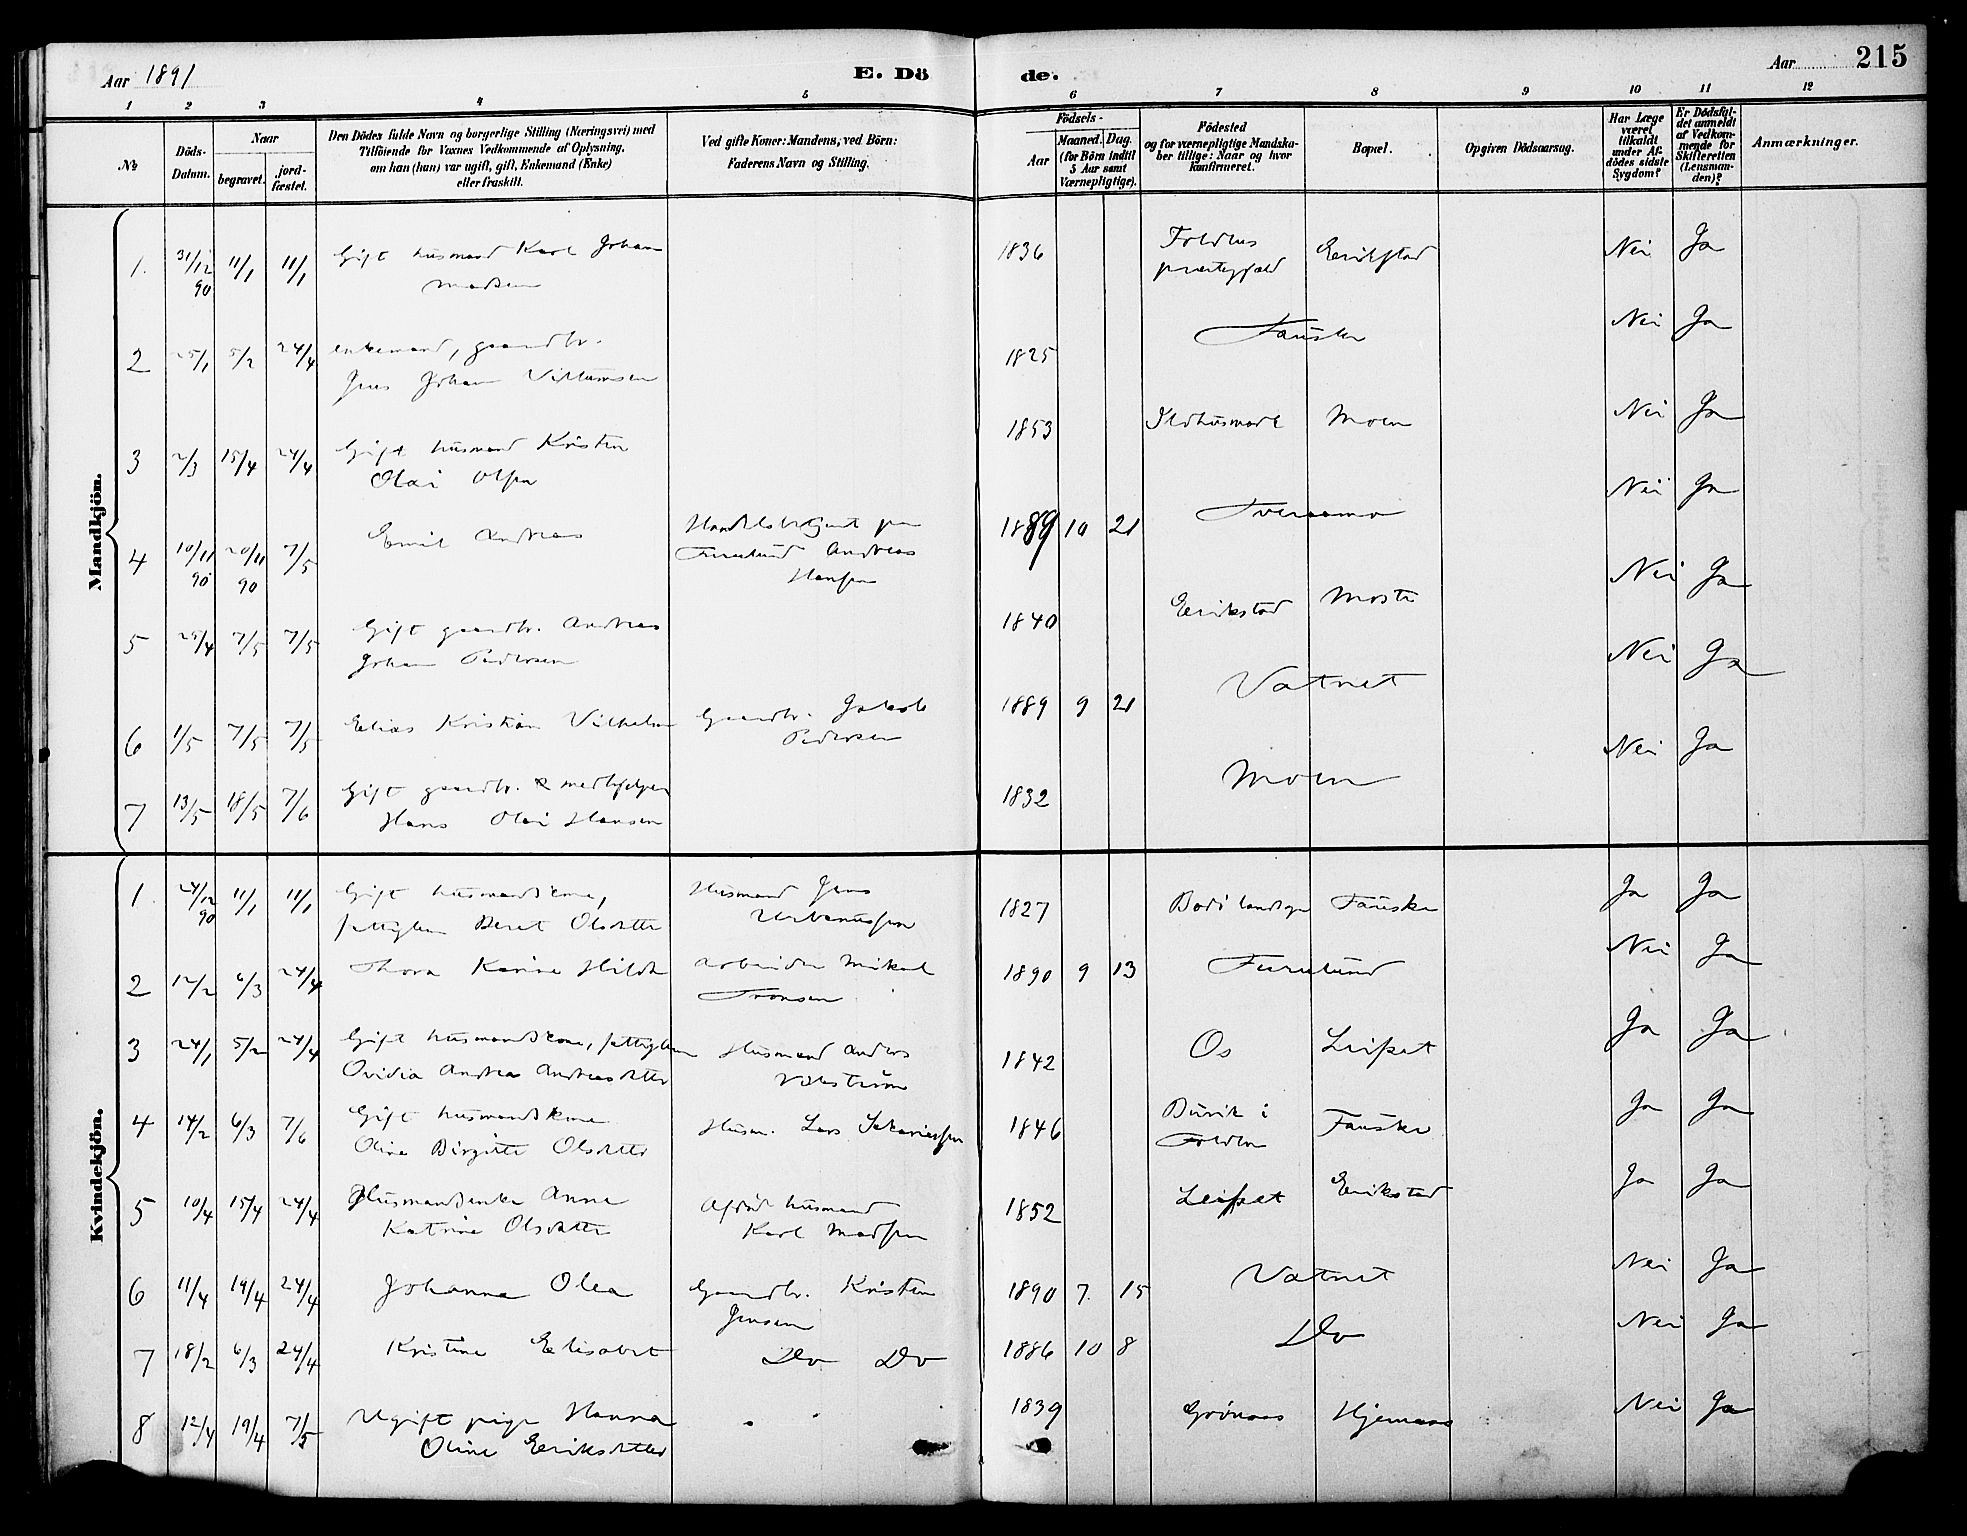 Aar 1891 E. Dö de. Aar 215
1 2 3 4 5 6 7 8 9 10 11 12
№ Döds-Datum. Naar begravet. jordfæstet. Den Dödes fulde Navn og borgerlige Stilling (Næringsvei) med Tilföiende for Voxnes Vedkommende af Oplysning, om han (hun) var ugift, gift, Enkemand (Enke) eller fraskilt. Ved gifte Koner: Mandens, ved Börn: Faderens Navn og Stilling. Födsels- Aar Maaned. Dag. (for Börn indtil 5 Aar samt Værnepligtige). Födested og for værnepligtige Mandskaber tillige: Naar og hvor konfirmeret. Bopæl. Opgiven Dödsaarsag. Har Læge været tilkaldt under Afdödes sidste Sygdom? Er Dödsfaldet anmeldt af Vedkommende for Skifteretten (Lensmanden)? Anmærkninger.
Mandkjön.
1. 31/12 90 11/1 11/1 Gift husmand Karl Johan Madsen 1836 Foldens præstegjæld Erikstad Nei Ja
2 25/1 5/2 24/4 enkemand, gaardbr. Jens Johan Villumsen 1825 Fauske Nei Ja
3 2/3 15/4 24/4 Gift husmand Kristen Olai Olsen 1853 Moen Nei Ja
4 10/11 90 20/11 90 7/5 Emil Andreas Furulund Andreas Hansen 1889 10 21 Tveraamo Nei Ja
5 29/4 7/5 7/5 Gift gaardbr. Andreas Johan Pedersen 1840 Erikstad Moste Nei Ja
6 1/5 7/5 7/5 Elias Kristian Vilhelm Gaardbr. Jakob Pedersen 1889 9 21 Vatnet Nei Ja
7 13/5 18/5 7/6 Gift gaardbr. & medhjelper Hans Olai Hansen 1832 Moen Nei Ja
Kvindekjön.
1. 24/12 90 11/1 11/1 Gift husmandskone, fattiglem Beret Olsdatter Husmand Jens Urbanussen 1827 Bodö landsogn Fauske Ja Ja
2 12/2 6/3 24/4 Thora Karine Hilda Arbeider Mikal Tronsen 1890 9 13 Furulund Nei Ja
3 24/1 5/2 24/4 Gift husmandskone, fattiglem Ovidia Andrea Andreasdatter Husmand Anders 1842 Os Leifset Ja Ja
4 14/2 6/3 7/6 Gift husmandskone Oline Birgitte Olsdatter Husm. Lars Sakariassen 1846 Buvik i Folden Fauske Ja Ja
5 10/4 15/4 24/4 Husmandsenke Anne Katrine Olsdatter Afdöd husmand Karl Madsen 1852 Leifset Erikstad Ja Ja
6 11/4 19/4 24/4 Johanna Olea Gaardbr. Kristen Jensen 1890 7. 15 Vatnet Nei Ja
7 18/2 6/3 24/4 Kristine Elisabet Do Do 1886 10 8 Do Nei Ja
8 12/4 19/4 7/5 Ugift pige Hanna Oline Eriksdatter 1839 Grönaas Hjemaas Nei Ja